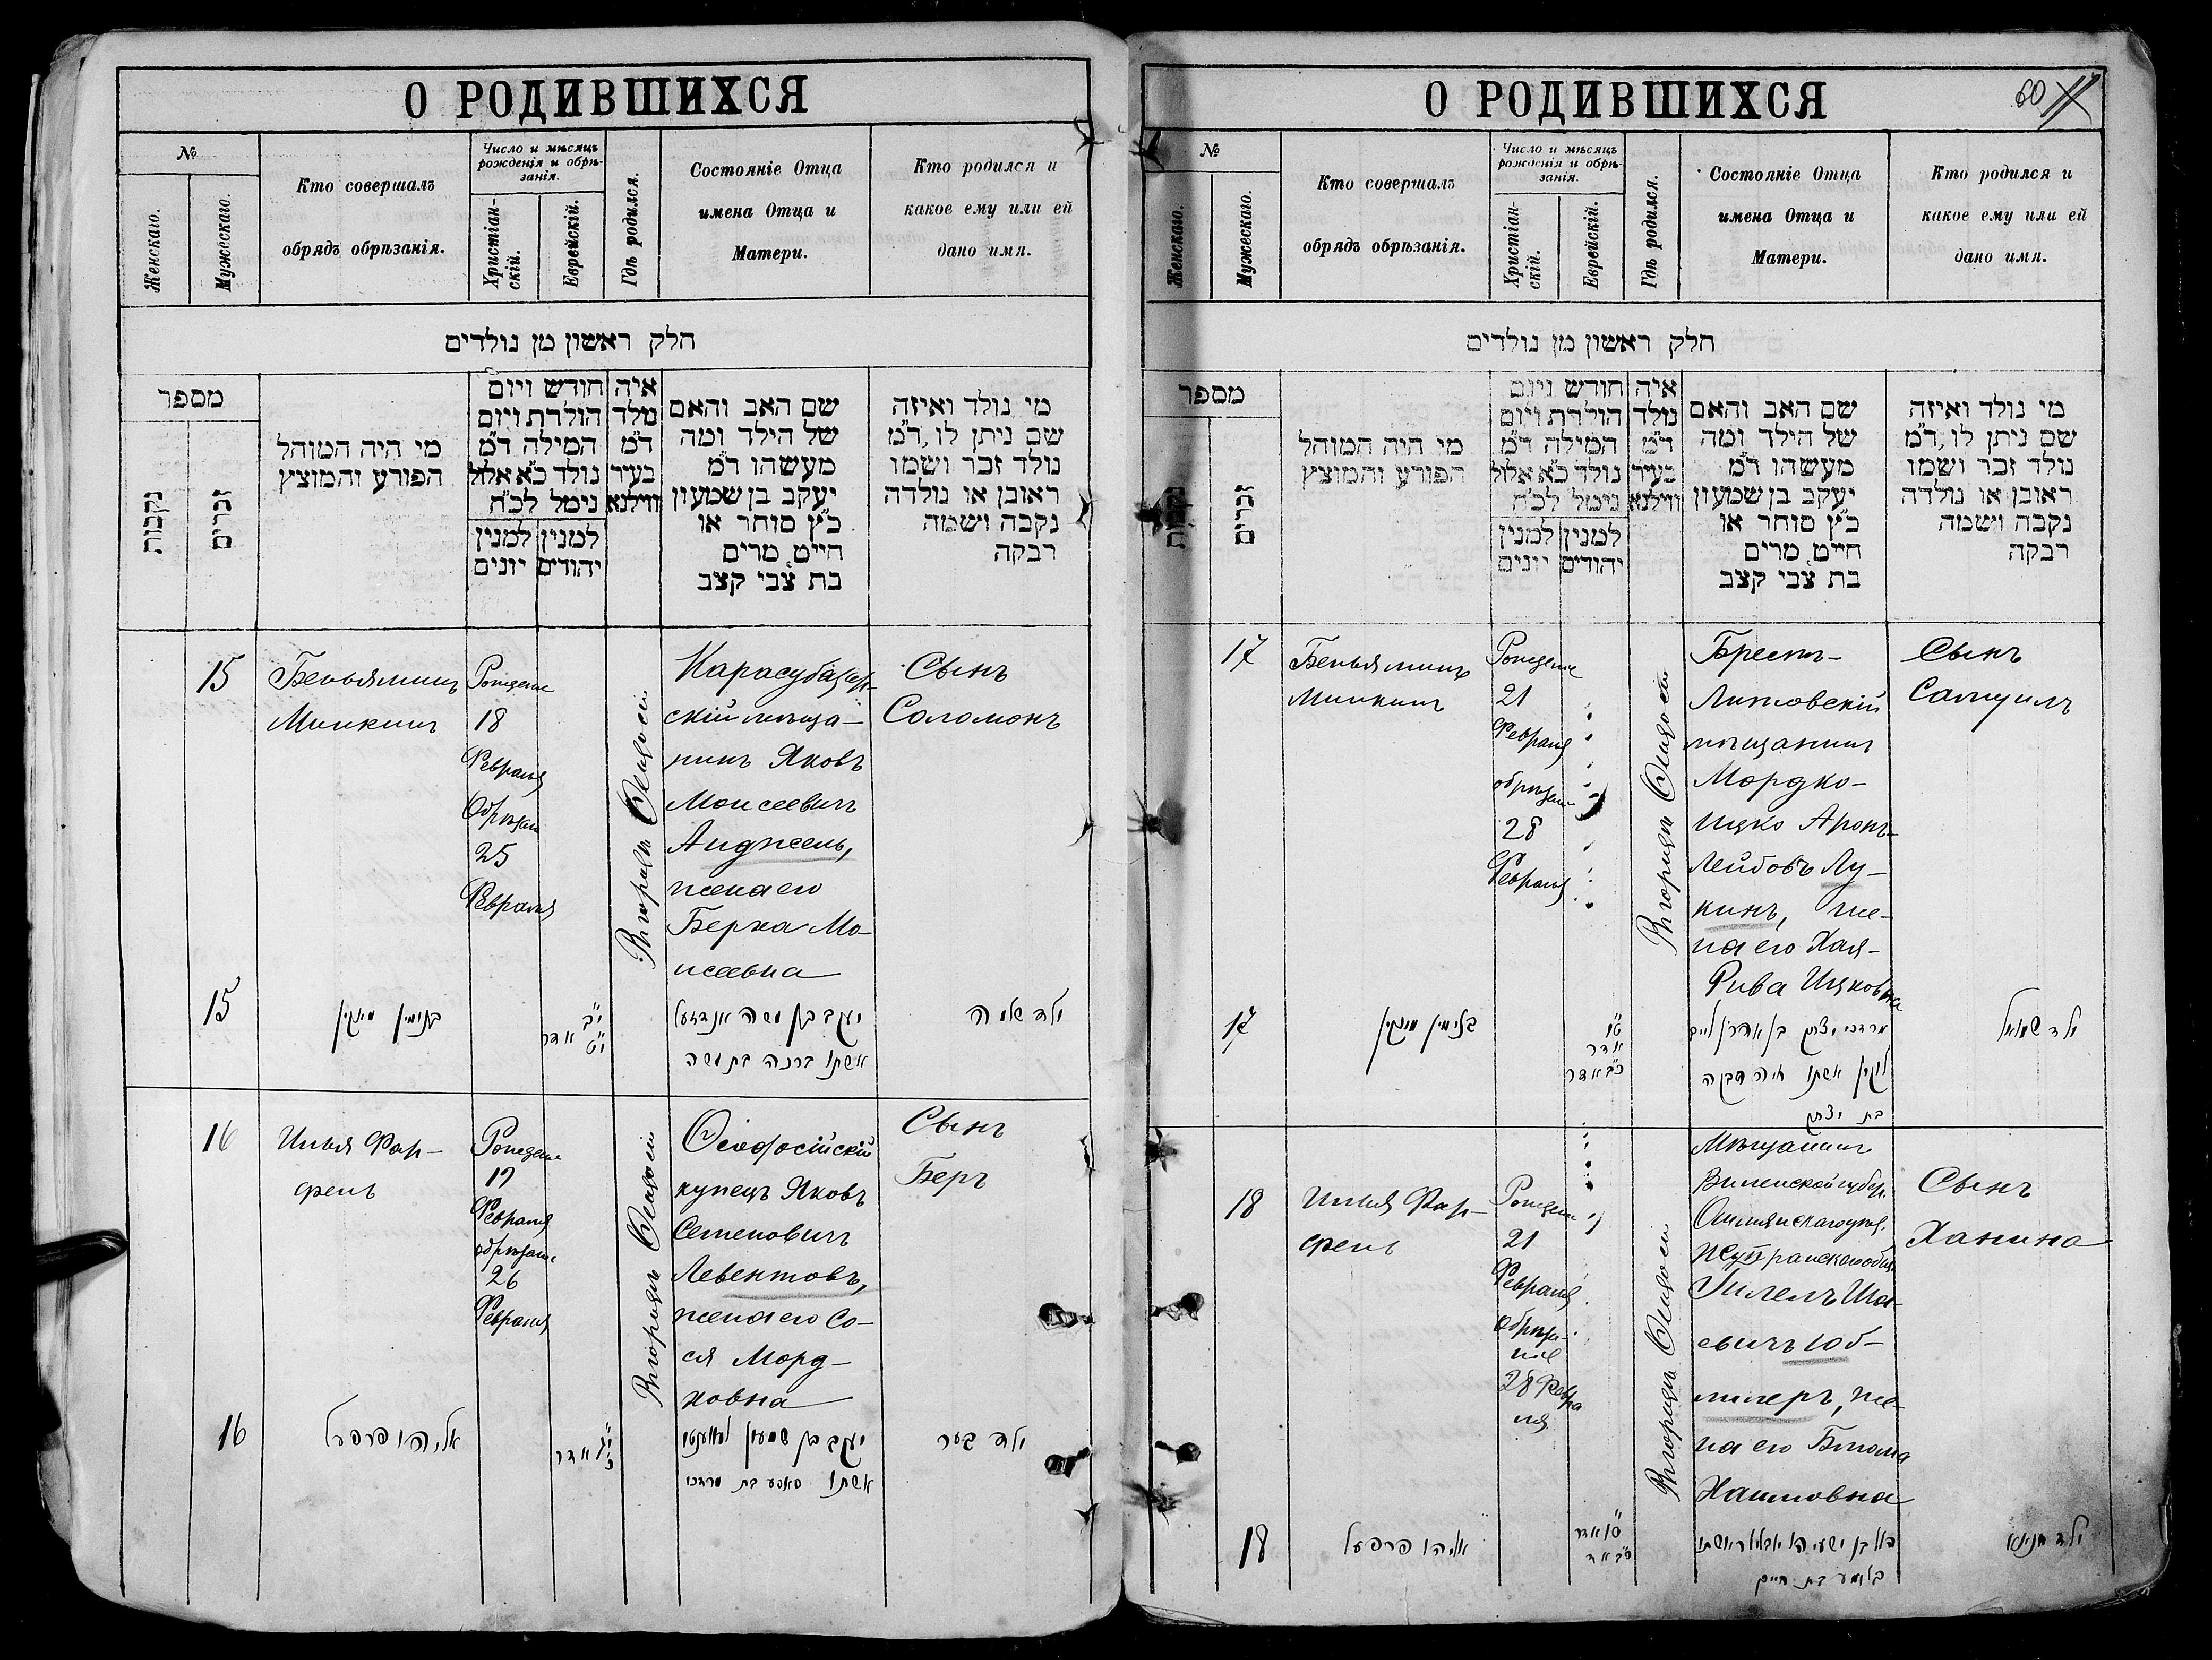 О РОДИВШИХСЯ
№
Женскаго.
Мужескаго.
Кто совершалъ
обрядъ обрѣзанія.
Число и мѣсяцъ
рожденія и обрѣ-
занія.
Христіан-
скій.
Еврейскій.
Гдѣ родился.
Состояніе Отца
имена Отца и
Матери.
Кто родился и
какое ему или ей
дано имя.
חלק ראשון מן נולדים
מספר
נקבות
זכרים
מי היה המוהל
הפורע והמוצץ
חודש ויום
הולדת ויום
המילה ד״מ
נולד כ״א אלול
נימל לכ״ח
למנין יהודים
למנין יונים
איה
נולד
ד״מ
בעיר
ווילנא
שם האב והאם
של הילד ומה
מעשהו ד״מ
יעקב בן שמעון
כ״ץ סוחר או
חייט, מרים
בת צבי קצב
מי נולד ואיזה
שם ניתן לו, ד״מ
נולד זכר ושמו
ראובן או נולדה
נקבה ושמה
רבקה
15
Беньяминъ
Минкинъ
18
Февраля
25
Февраля
Карасубазар-
скій мѣща-
нинъ Яковъ
Моисеевичъ
Анджель,
жена его
Берха Мо-
исеевна
Сынъ
Соломонъ
15
בנימין מינקין
י״ב
י״ט אדר
יעקב בן משה אנדזעל
אשתו ברכה בת משה
ילד שלמה
16
Илья Фар-
фель
19
Февраля
26
Февраля
Ѳеодосійскій
купецъ Яковъ
Семеновичъ
Левентовъ,
жена его Со-
ся Морд-
ховна
Сынъ
Беръ
16
אליהו פרפל
אדר
יעקב בן שמעון
אשתו סאסע בת מרדכי
ילד בער
О РОДИВШИХСЯ
60
№
Женскаго.
Мужескаго.
Кто совершалъ
обрядъ обрѣзанія.
Число и мѣсяцъ
рожденія и обрѣ-
занія.
Христіан-
скій.
Еврейскій.
Гдѣ родился.
Состояніе Отца
имена Отца и
Матери.
Кто родился и
какое ему или ей
дано имя.
חלק ראשון מן נולדים
מספר
זכרים
מי היה המוהל
הפורע והמוצץ
חודש ויום
הולדת ויום
המילה ד״מ
נולד כ״א אלול
נימל לכ״ח
למנין יהודים
למנין יונים
איה
נולד
ד״מ
בעיר
ווילנא
שם האב והאם
של הילד ומה
מעשהו ד״מ
יעקב בן שמעון
כ״ץ סוחר או
חייט, מרים
בת צבי קצב
מי נולד ואיזה
שם ניתן לו, ד״מ
נולד זכר ושמו
ראובן או נולדה
נקבה ושמה
רבקה
17
Беньяминъ
Минкинъ
21
Февраля
28
Февраля
Брестъ-
Литовскій
мѣщанинъ
Мордко-
Ицко Аронъ-
Лейбовъ Лу-
кинъ, же-
на его Хая-
Рива Ицковна
Сынъ
Самуилъ
17
בנימין מינקין
ט״ו
אדר
כ״ב אדר
מרדכי יצחק בן אהרן לייב
לוקין אשתו חיה רבקה
בת יצחק
ילד שמואל
18
Илья Фар-
фель
21
Февраля
28 Февра
ля
Мѣщанинъ
Виленской губер.
Гилель Ша-
евичъ Юб-
милеръ, же-
на его Блюма
Хаимовна
Сынъ
Ханина
18
אליהו פרפעל
ט״ו אדר
כ״ב אד
בן ישעיהו
בלומע בת חיים
ילד חנינא